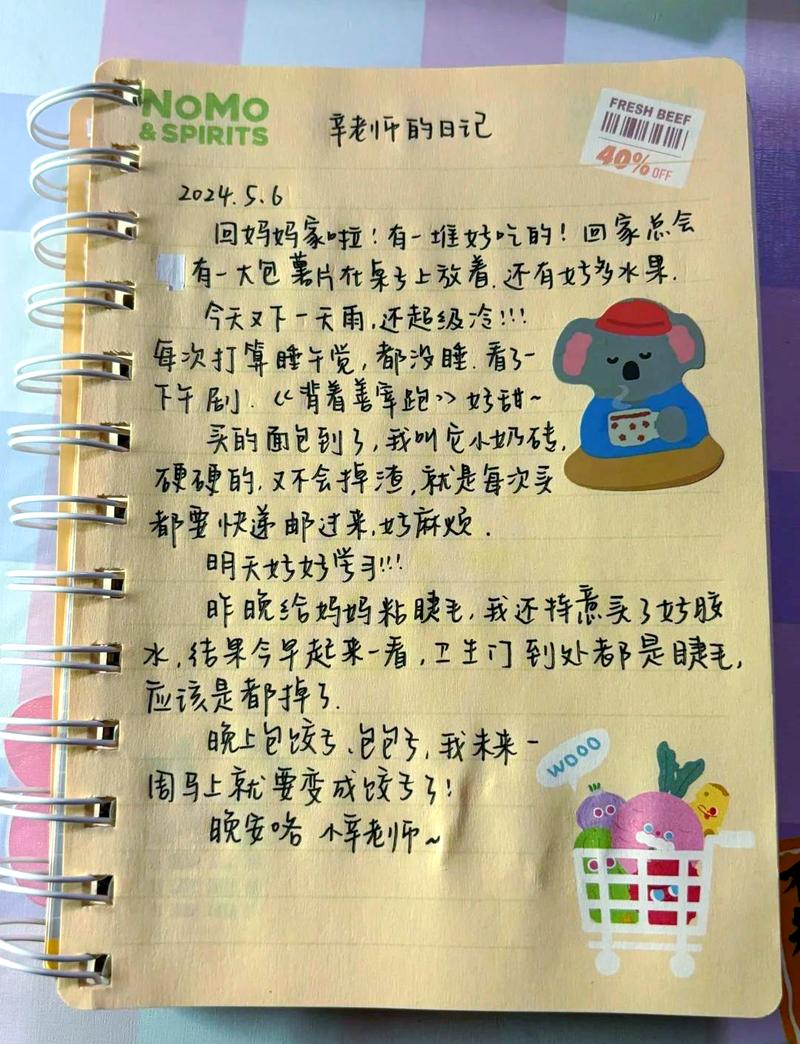 NoMo
& SPIRITS
辛老师的日记
FRESH BEEF
40% OFF
2024.5.6
回妈妈家啦!有一堆好吃的!回家总会
有一大包薯片在桌子上放着.还有好多水果.
今天又下一天雨,还超级冷!!!
每次打算睡午觉,都没睡.看了一
下午剧.《背着善宰跑》好甜~
买的面包到了,我叫它小奶砖,
硬硬的.又不会掉渣,就是每次买
都要快递邮过来,好麻烦.
明天好好学习!!!
昨晚给妈妈粘睫毛,我还特意买了好胶
水,结果今早起来一看,卫生门到处都是睫毛,
应该是都掉了.
晚上包饺子、包包子,我未来一
周马上就要变成饺子了!
晚安咯 小辛老师~
WOOO